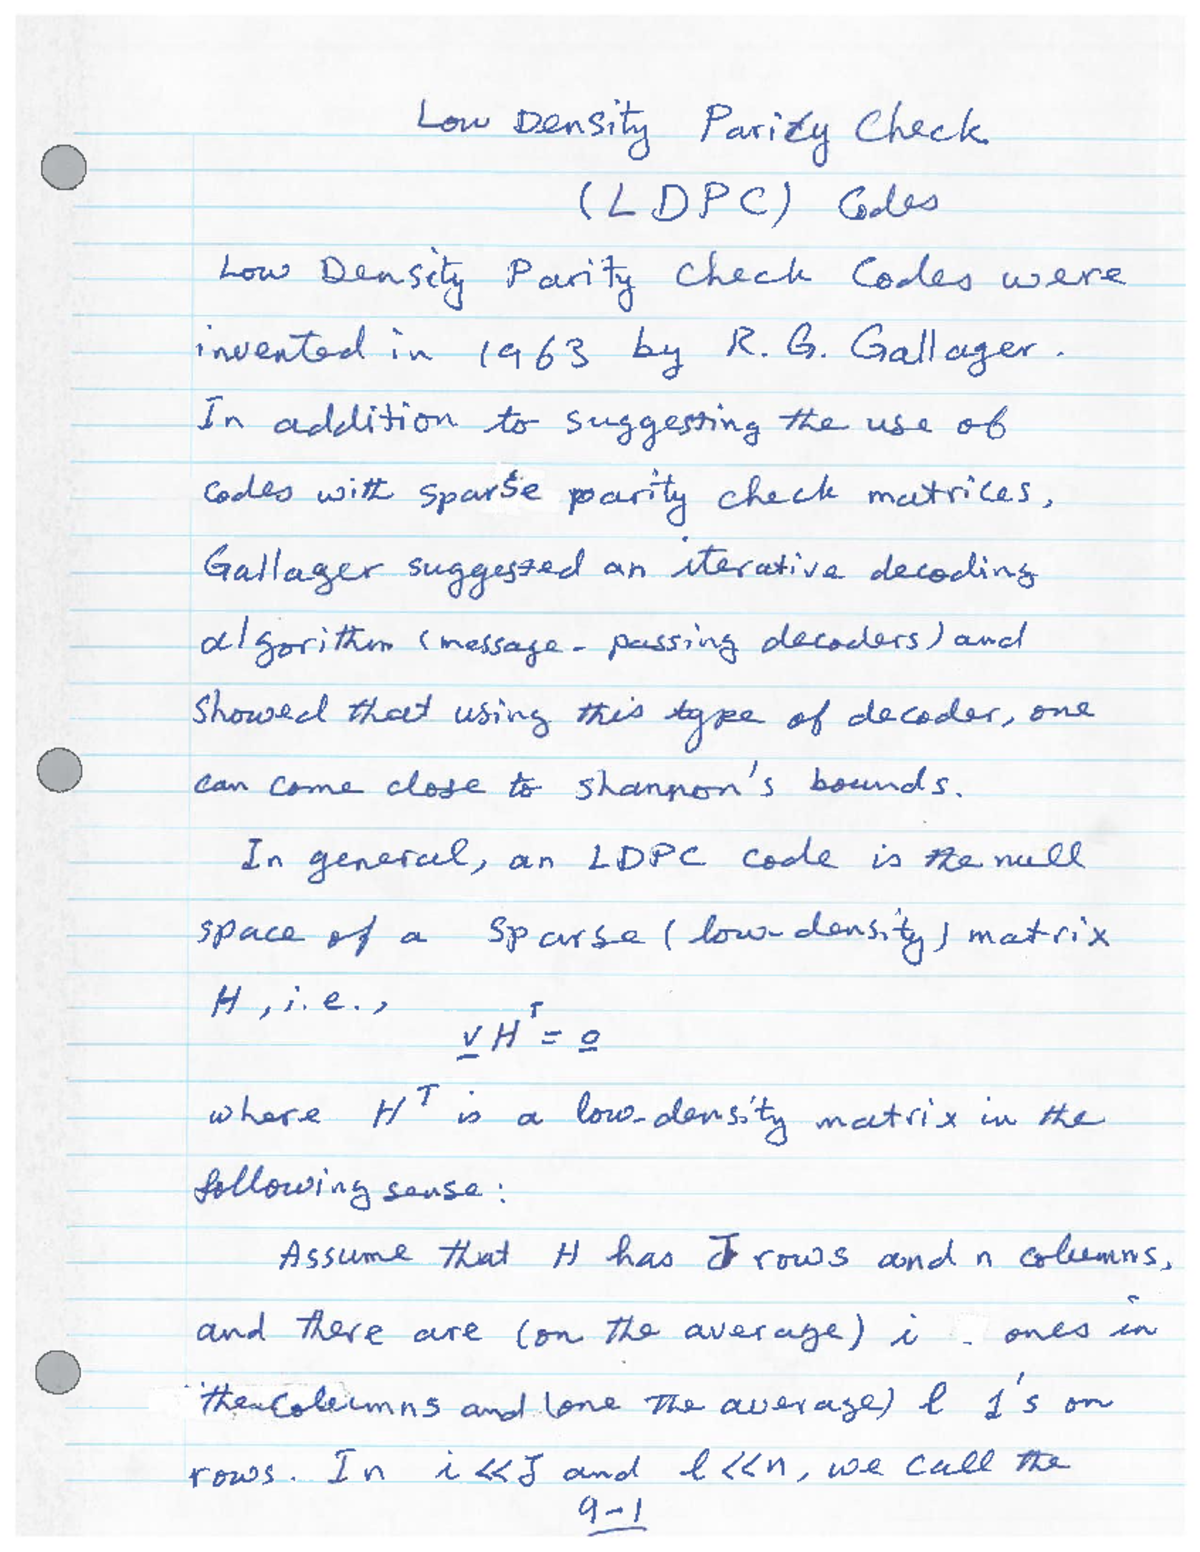 Low Density Parity Check
(LDPC) Codes
Low Density Parity Check Codes were
invented in 1963 by R. G. Gallager.
In addition to suggesting the use of
codes with sparse parity check matrices,
Gallager suggested an iterative decoding
algorithm (message-passing decoders) and
showed that using this type of decoder, one
can come close to Shannon's bounds.
In general, an LDPC code is the null
space of a sparse (low-density) matrix
H, i.e.,
v H^T = 0
where H^T is a low-density matrix in the
following sense:
Assume that H has J rows and n columns,
and there are (on the average) i ones in
the columns and (one the average) l 1's on
rows. In i<<J and l<<n, we call the
9-1